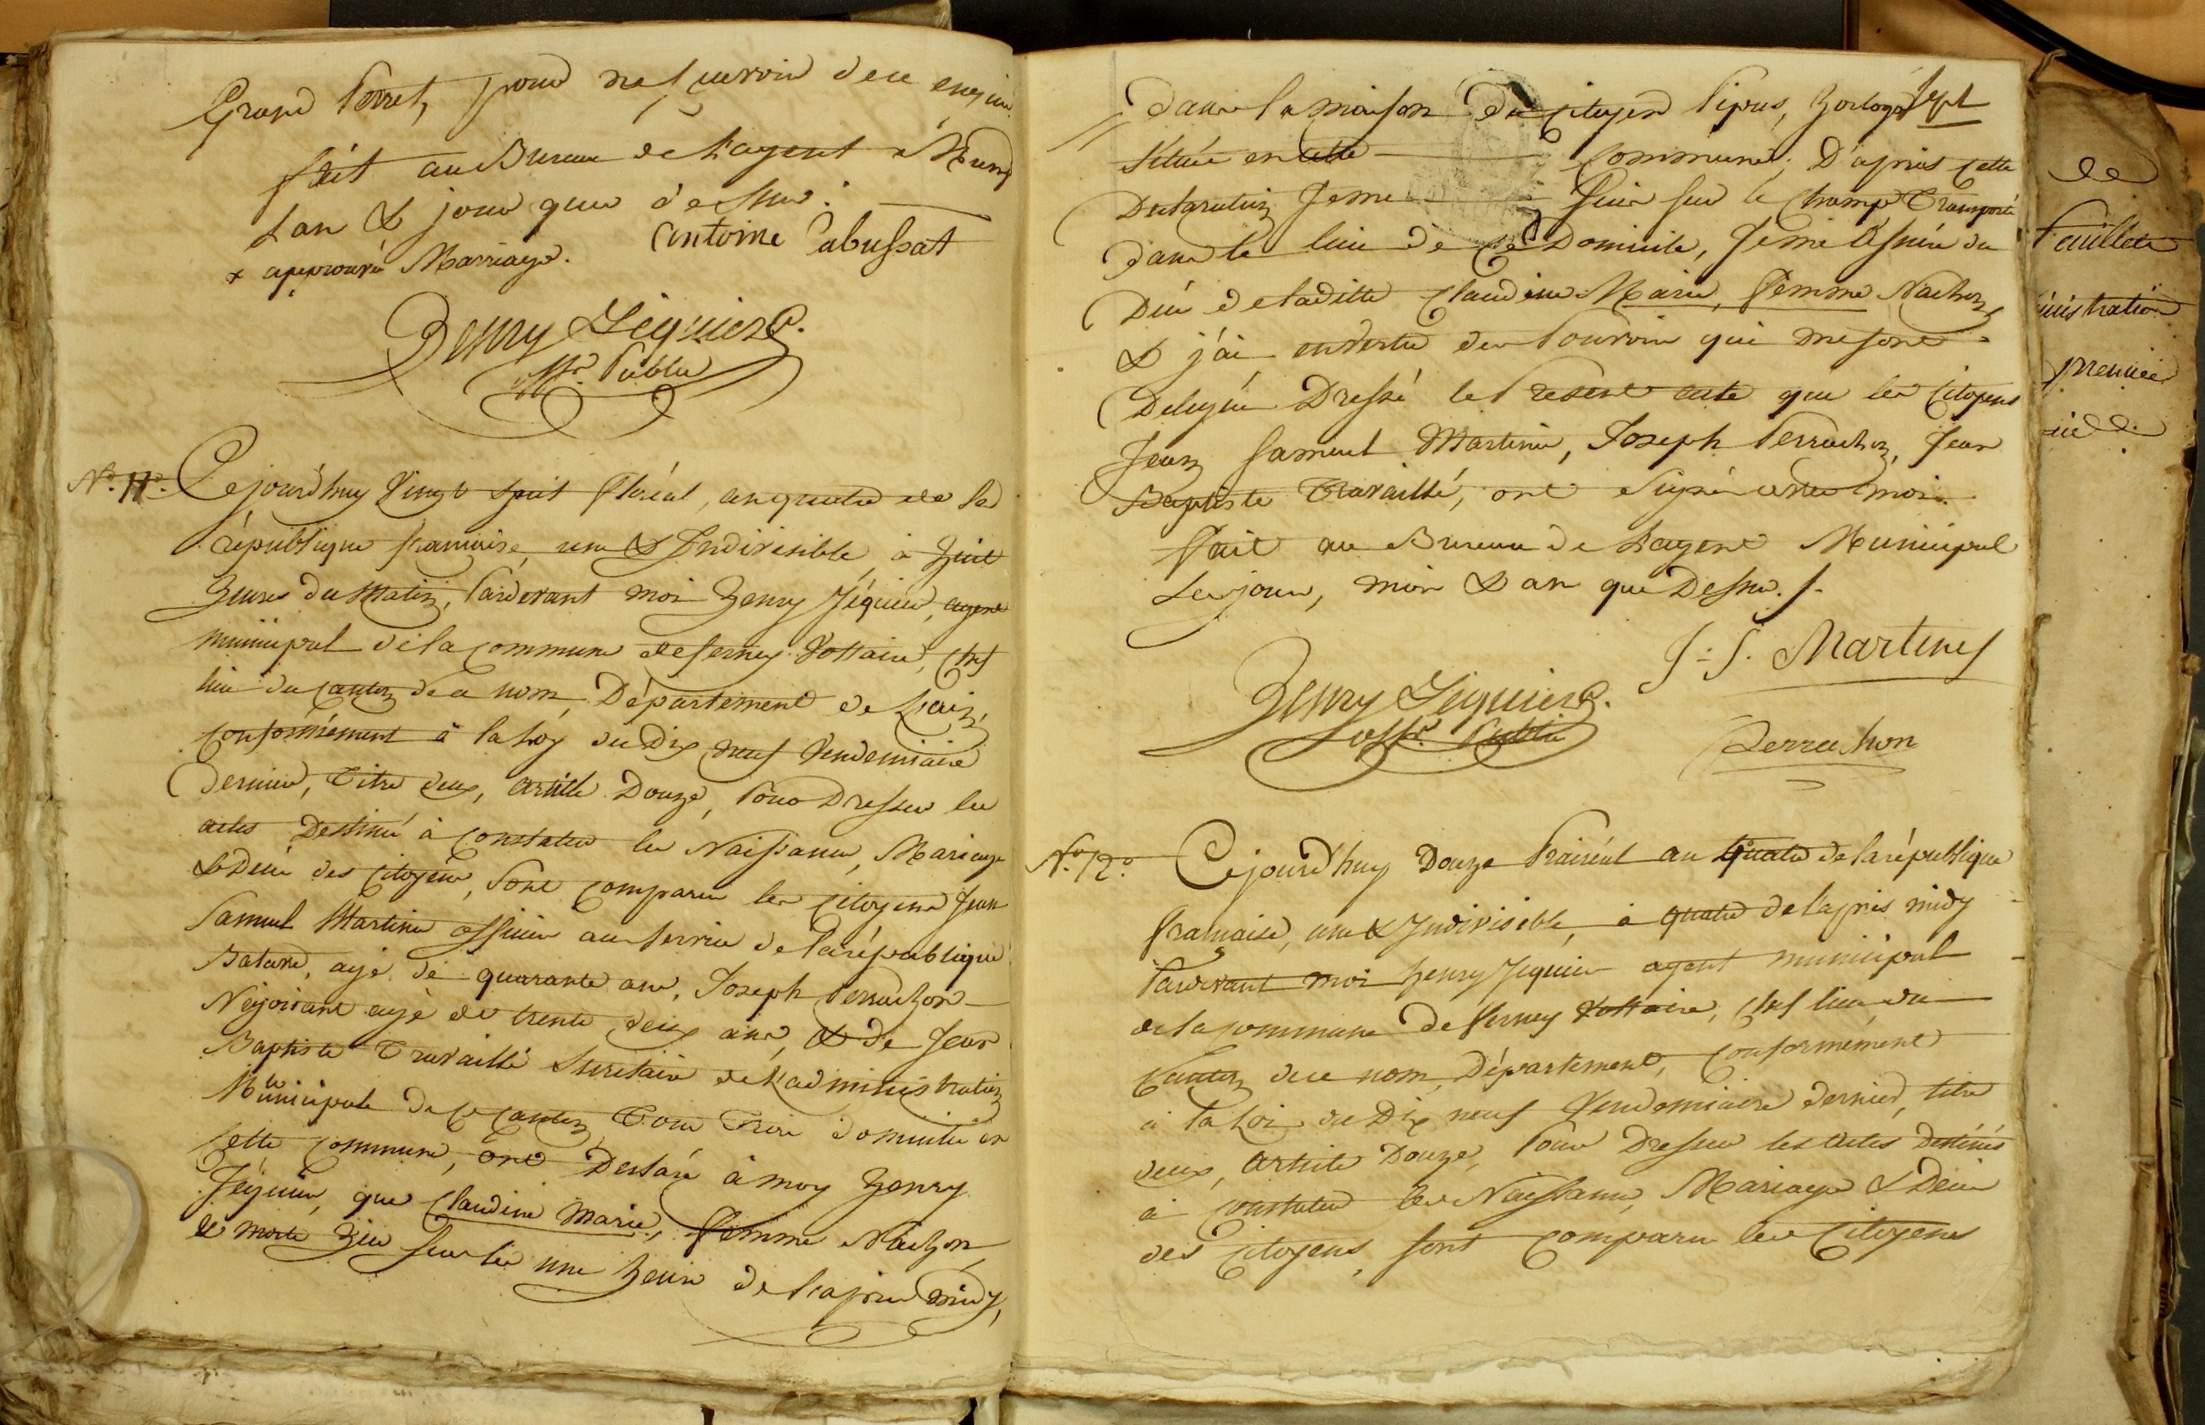 Grand Perret, pour ne sçavoir de ce enquis
fait au Bureau de L'agent Muni
L'an & jour que dessus.
+ approuvé Marriage. Antoine Cabussat
Henry Jéquier
offr. Public
N.° 11.° Cejourd'huy Vingt huit floréal, an quatre de la
république francoise, une & Indivisible, à huit
heures du Matin, Pardevant moi henry Jéquier, agent
municipal de la commune de ferney Voltaire, Chef
lieu du canton de ce nom, Département de L'ain,
Conformément à la Loy du Dix neuf Vendemiaire
Dernier, Titre deux, Article Douze, Pour Dresser les
actes Destiné à constater les Naissance, Mariage
& Décès des Citoyens, sont comparu les citoyens Jean
Samuel Martine officier au service de la république
Batave, agé de quarante ans, Joseph Perrachon
Négociant agé de trente deux ans, & de Jean
Baptiste Travaillé Secretaire de L'administration
Municipale de ce canton, Tous Trois domicilié en
Cette commune, ont Déclaré à moy henry
Jéquier, que Claudine Marie, femme Nachon
et morte hier sur les une heure de L'après midy,
Sept
Dans la maison du citoyen Pipus, horloger
située en cette commune, D'après cette
Declaration Je me suis sur le Champ Transporté
dans le lieu de ce Domicile, Je me assuré du
Décès de laditte Claudine Marie, femme Nachon,
& j'ai en vertu des Pouvoirs qui me sont
Delegué Dressé le Present acte que les Citoyens
Jean Samuel Martine, Joseph Perrachon, Jean
Baptiste Travaillé, ont signé avec moi.
fait au Bureau de L'agent Municipal
Les jour, mois & an que Dessus.
J: S. Martines
Henry Jéquier
offr. Public
Perrachon
N.° 12.° Cejourd'huy Douze Prairéal an Quatre de la république
francaise, une & Indivisible, à quatre de l'après midy
Pardevant moi henry Jequier agent municipal
de la commune de ferney Voltaire, Chef lieu du
Canton de ce nom, Département, Conformément
à la Loi du Dix neuf Vendemiaire dernier, titre
deux, Article Douze, Pour Dresser les actes Destinés
à constater les Naissance, Mariage & Décès
des Citoyens, sont comparu les Citoyens
de
feuillets
inistration
premier